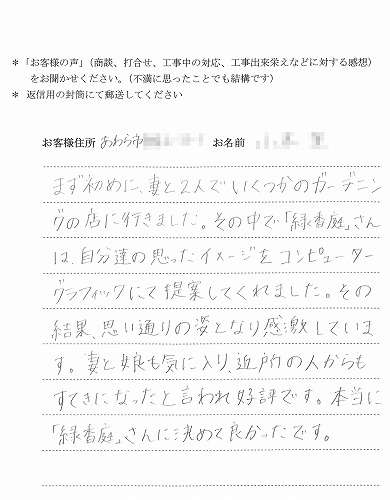 ＊「お客様の声」（商談、打合せ、工事中の対応、工事出来栄えなどに対する感想）
をお聞かせください。（不満に思ったことでも結構です）
＊ 返信用の封筒にて郵送してください
お客様住所 あわら市 お名前
まず初めに、妻と2人でいくつかのガーデニン
グの店に行きました。その中で「緑香庭」さん
は、自分達の思ったイメージをコンピューター
グラフィックにて提案してくれました。その
結果、思い通りの姿となり感激していま
す。妻と娘も気に入り、近所の人からも
すてきになったと言われ好評です。本当に
「緑香庭」さんに決めて良かったです。